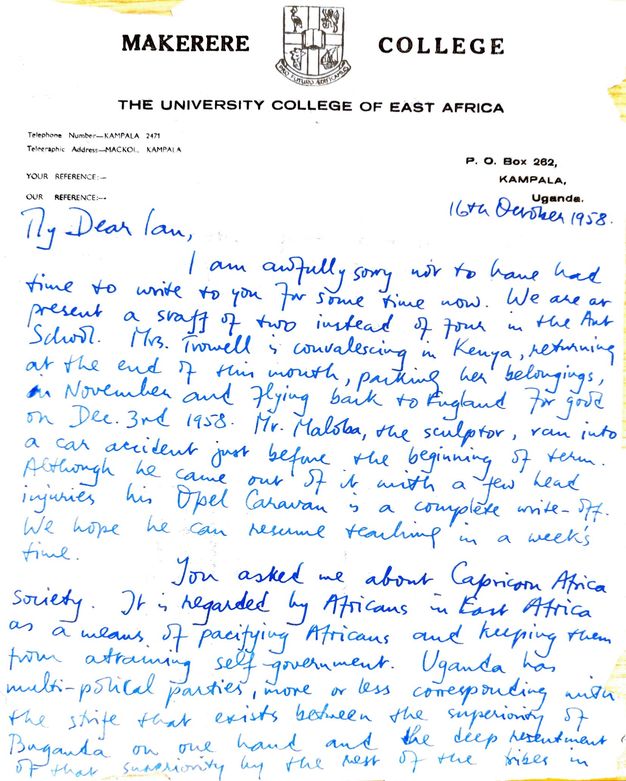 MAKERERE COLLEGE
PRO FUTURO AEDIFICAMUS
THE UNIVERSITY COLLEGE OF EAST AFRICA
Telephone Number—KAMPALA 2471
Telegraphic Address—MACKOL, KAMPALA
P. O. Box 262,
KAMPALA,
Uganda.
YOUR REFERENCE:—
OUR REFERENCE:—
16th October 1958.
My Dear Ian,
I am awfully sorry not to have had
time to write to you for some time now. We are at
present a staff of two instead of four in the Art
School. Mrs. Trowell is convalescing in Kenya, returning
at the end of this month, packing her belongings,
in November and flying back to England for good
on Dec. 3rd 1958. Mr. Maloba, the sculptor, ran into
a car accident just before the beginning of term.
Although he came out of it with a few head
injuries his Opel Caravan is a complete write-off.
We hope he can resume teaching in a weeks
time.
You asked me about Capricorn Africa
Society. It is regarded by Africans in East Africa
as a means of pacifying Africans and keeping them
from attaining self-government. Uganda has
multi-political parties, more or less corresponding with
the strife that exists between the superiority of
Buganda on one hand and the deep resentment
of that superiority by the rest of the tribes in